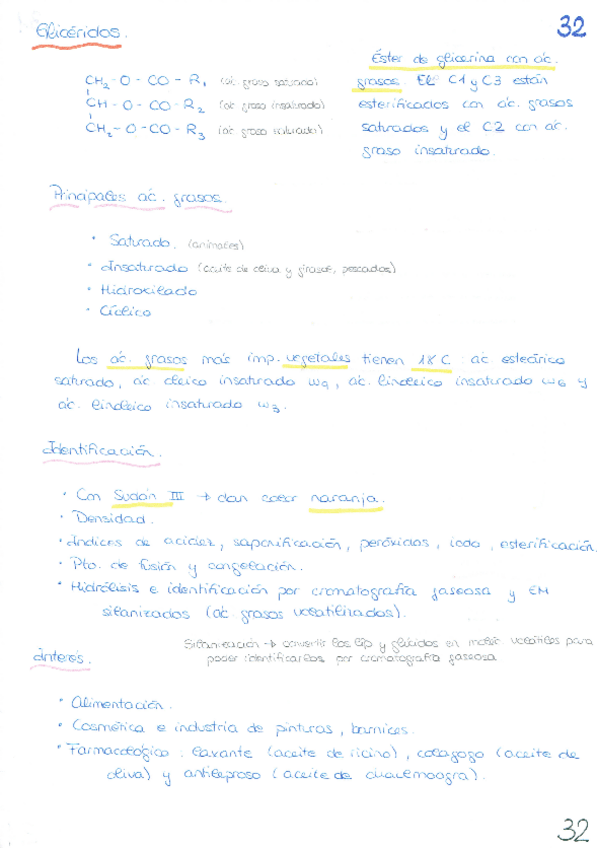 Glicéridos.
32
CH2 - O - CO - R1 (ác. graso saturado)
CH - O - CO - R2 (ác graso insaturado)
CH2 - O - CO - R3 (ác graso saturado)
Éster de glicerina con ác.
grasos. El C1 y C3 están
esterificados con ác. grasos
saturados y el C2 con ác.
graso insaturado.
Principales ác. grasos.
· Saturado. (animales)
· Insaturado (aceite de oliva y girasol, pescados)
· Hidroxilado
· Cíclico
Los ác. grasos más imp. vegetales tienen 18 C : ác esteárico
saturado, ác oleico insaturado w9, ác. linoleico insaturado w6 y
ác. linoleico insaturado w3.
Identificación.
· Con Sudán III → dan color naranja.
· Densidad.
· Índices de acidez, saponificación, peróxidos, iodo, esterificación.
· Pto. de fusión y congelación.
· Hidrólisis e identificación por cromatografía gaseosa y EM
silanizados (ác. grasos volatilizados).
Silanización → convertir los líp y glúcidos en moléc volátiles para
poder identificarlos por cromatografía gaseosa
Interés.
· Alimentación.
· Cosmética e industria de pinturas, barnices.
· Farmacológico : laxante (aceite de ricino), colagogo (aceite de
oliva) y antileproso (aceite de chaulmoogra).
32